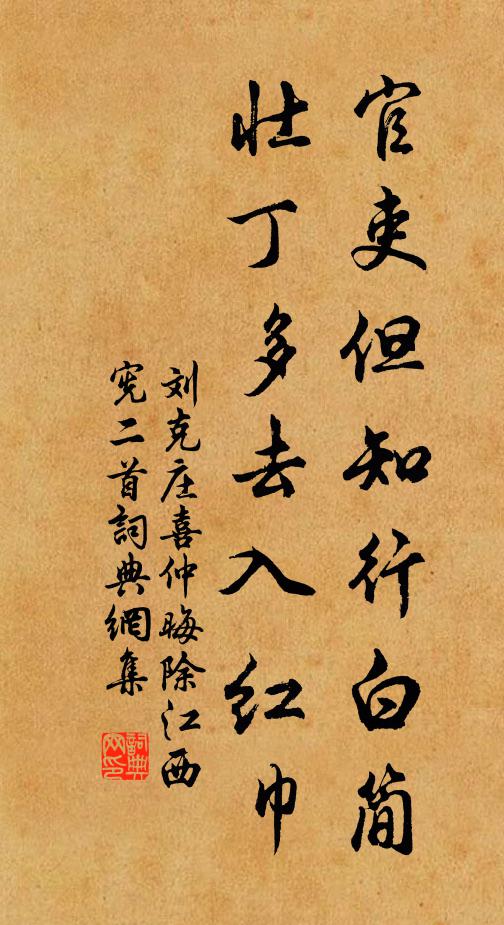 官吏但知行白简
壮丁多去入红巾
刘克庄喜仲晦除江西
宪二首詞典網集
詞典
网印